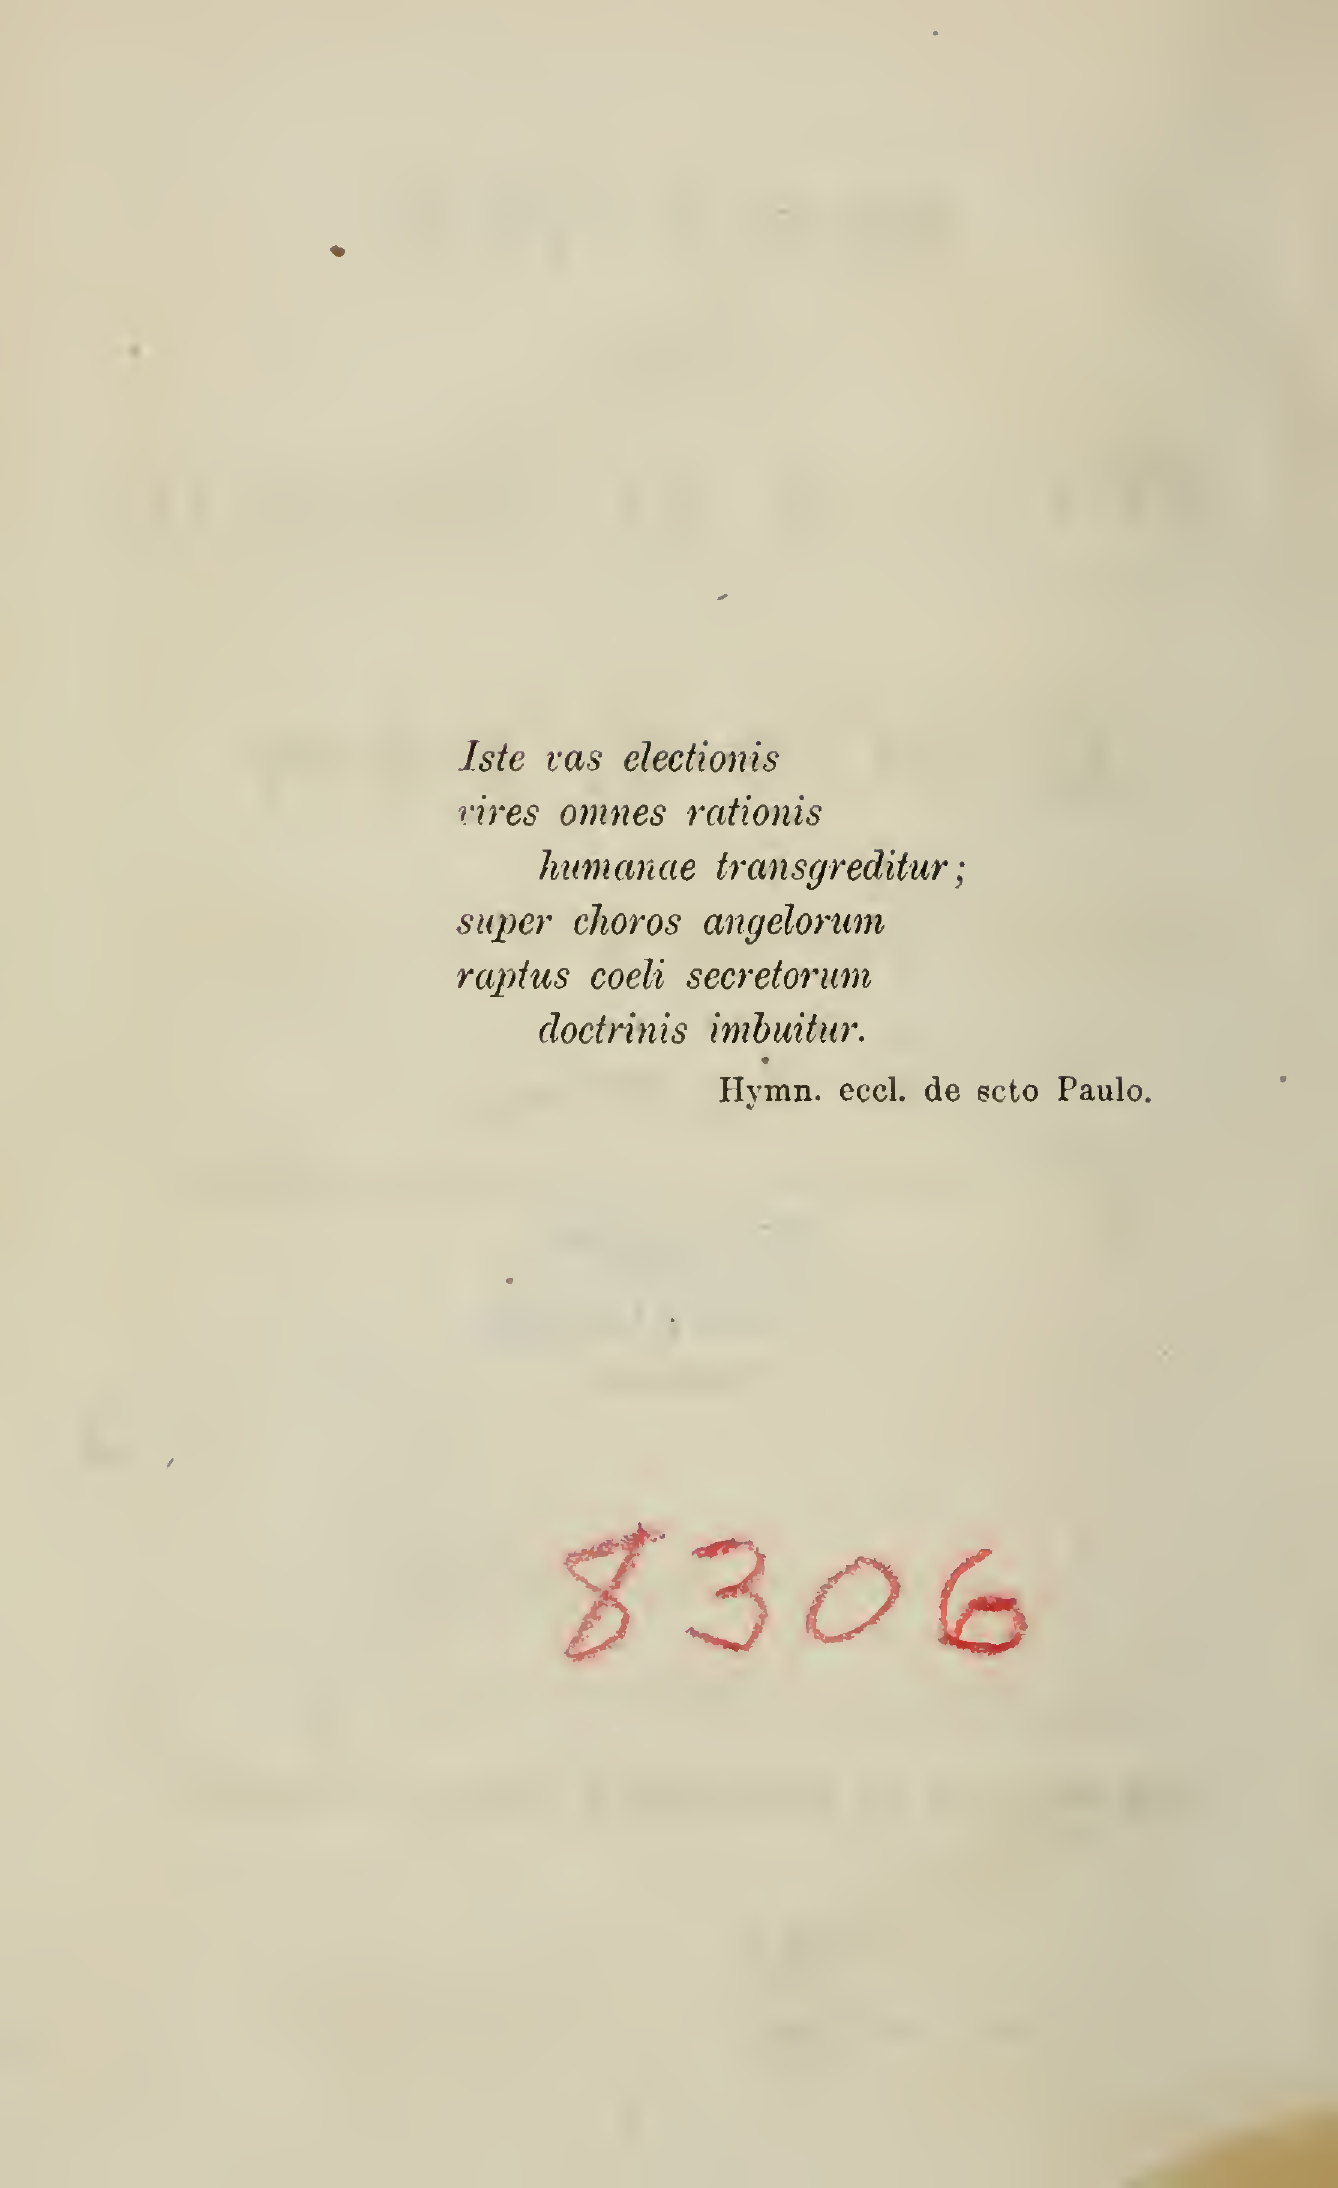 Iste vas electionis
vires omnes rationis
humanae transgreditur;
super choros angelorum
raptus coeli secretorum
doctrinis imbuitur.
Hymn. eccl. de scto Paulo.
8306